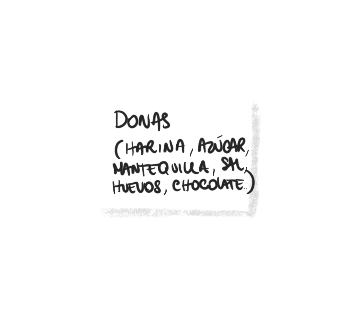 DONAS
(HARINA, AZÚCAR,
MANTEQUILLA, SAL,
HUEVOS, CHOCOLATE..)